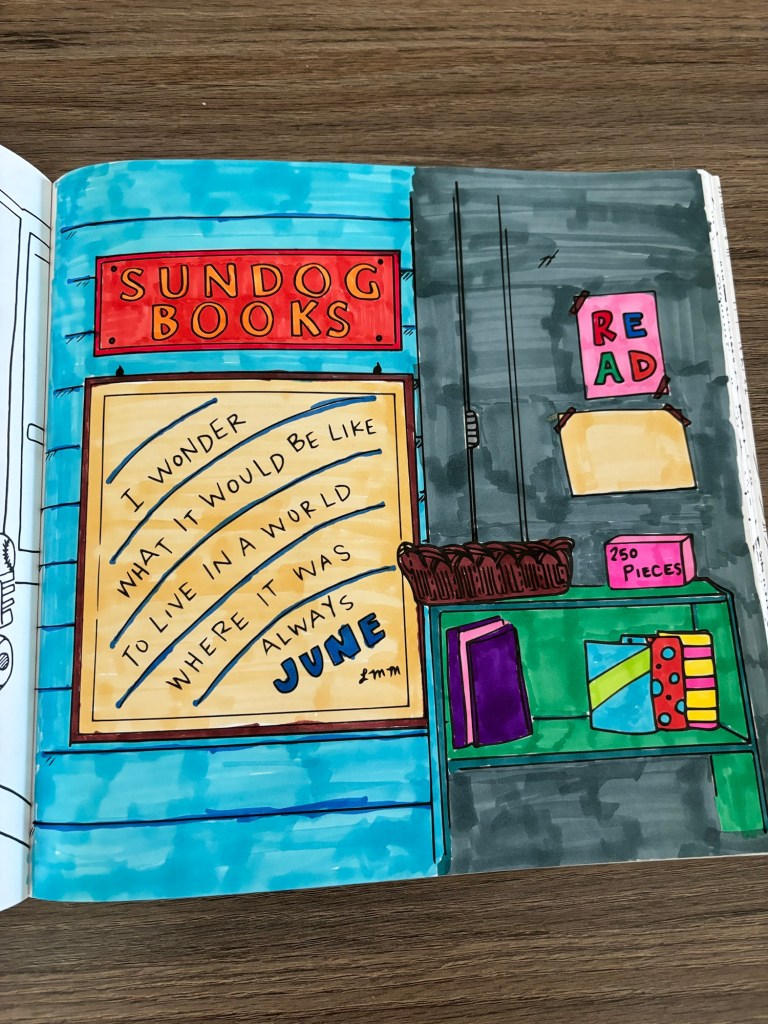 SUNDOG
BOOKS
I WONDER
WHAT IT WOULD BE LIKE
TO LIVE IN A WORLD
WHERE IT WAS
ALWAYS
JUNE
LMM
RE
AD
250
PIECES